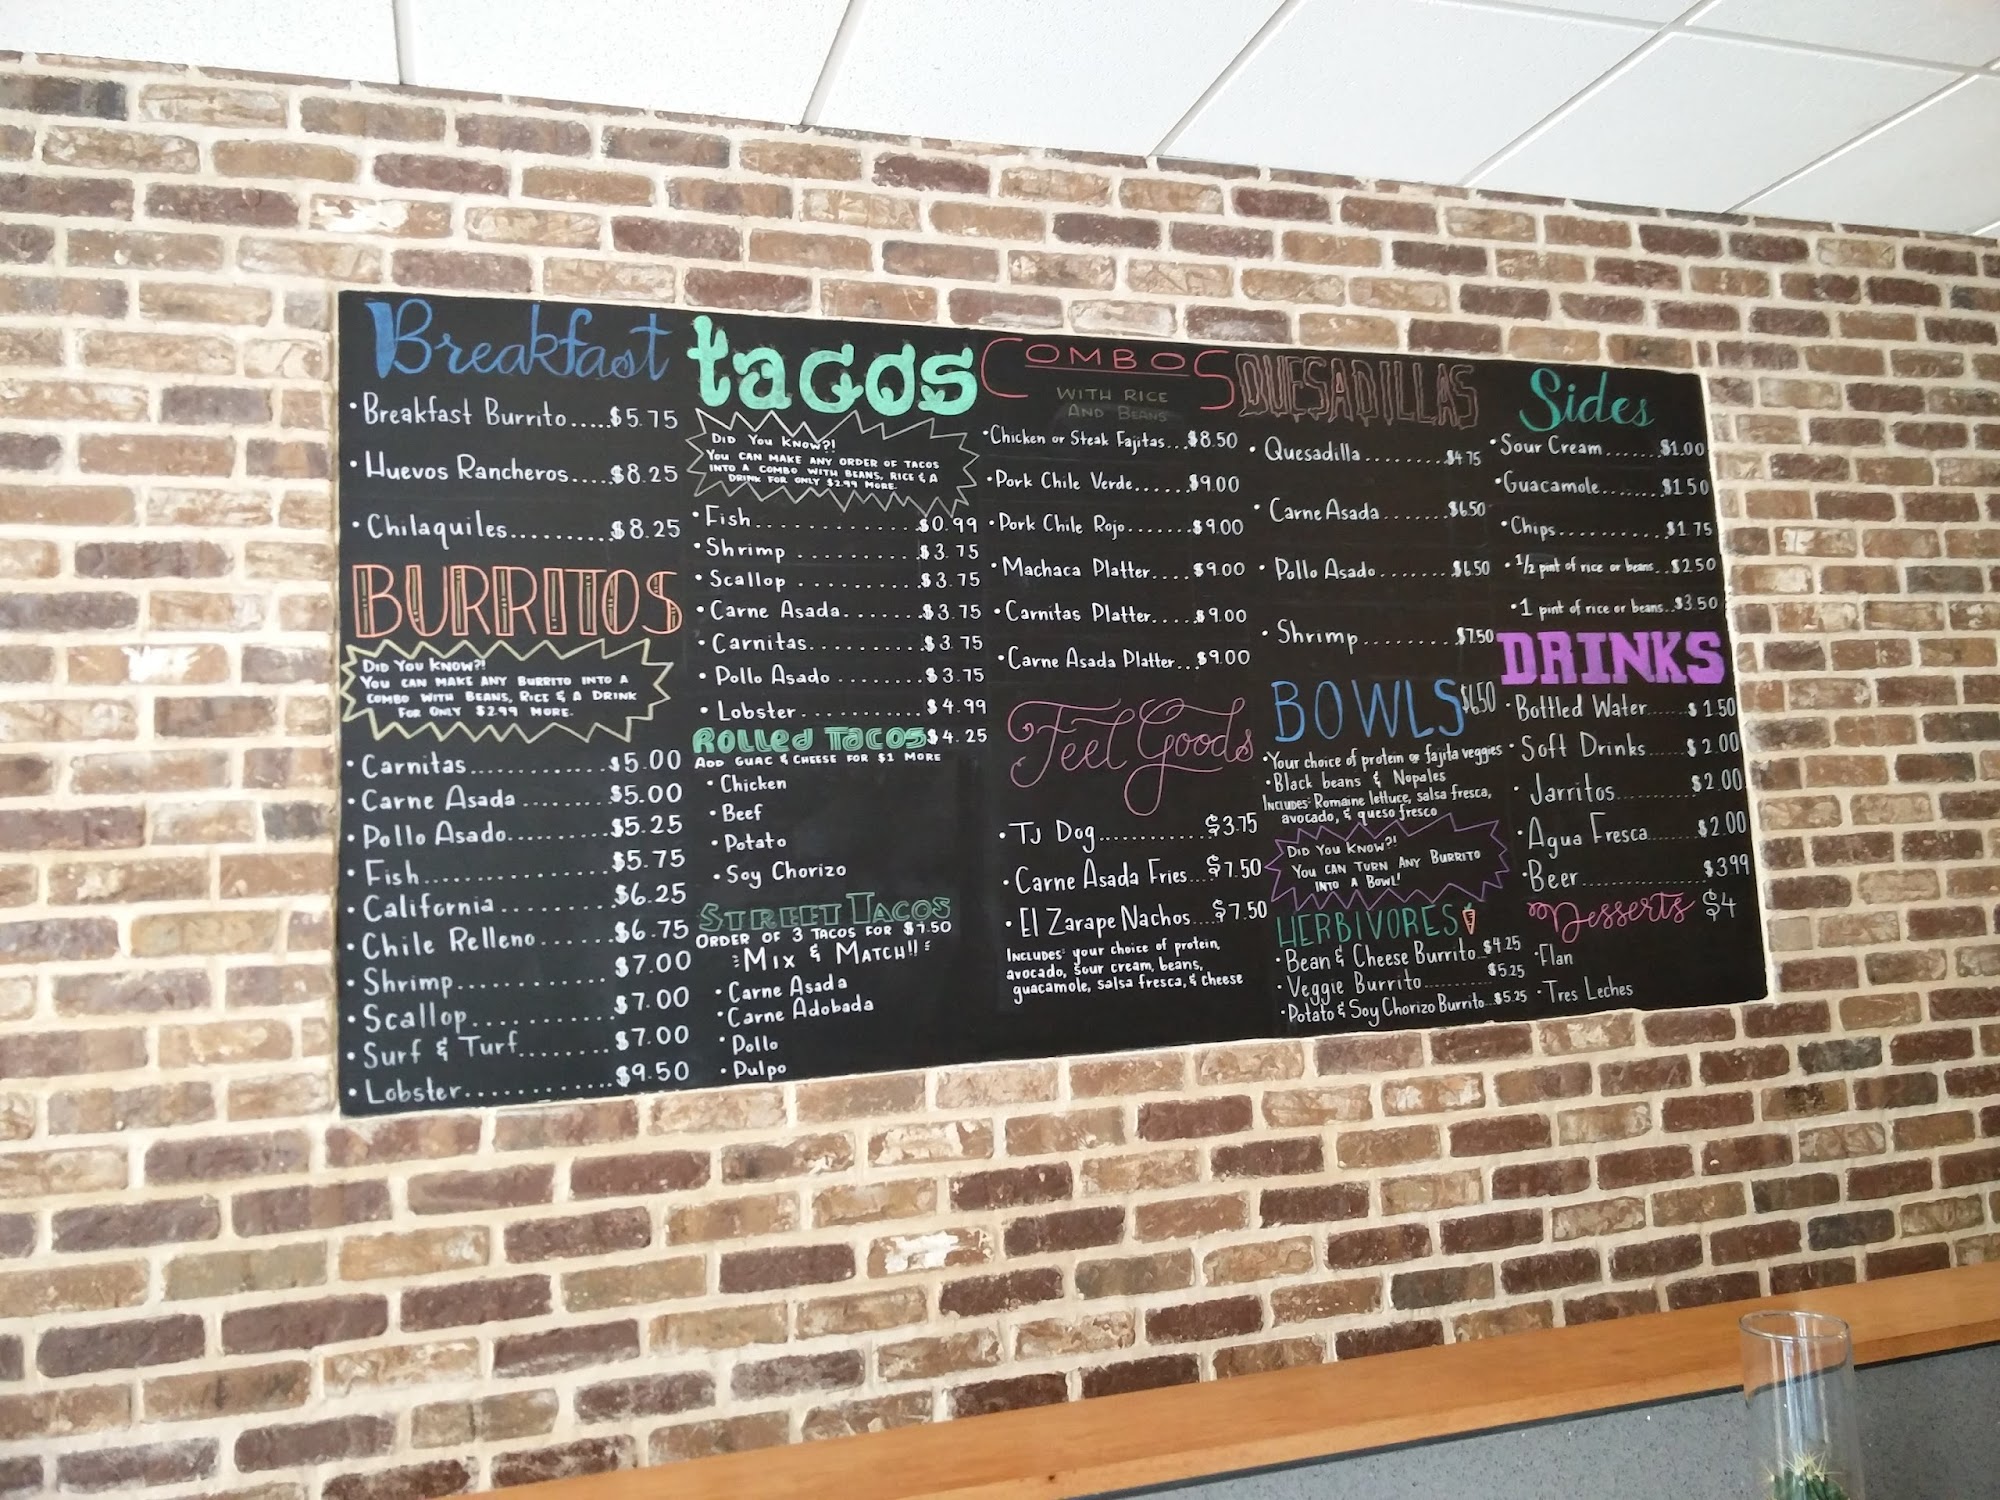 Breakfast
• Breakfast Burrito.....$5.75
• Huevos Rancheros.....$8.25
• Chilaquiles..........$8.25
BURRITOS
Did You Know?!
You can make any Burrito into a
combo with Beans, Rice & a Drink
for only $2.99 more.
• Carnitas..............$5.00
• Carne Asada.........$5.00
• Pollo Asado..........$5.25
• Fish....................$5.75
• California............$6.25
• Chile Relleno.......$6.75
• Shrimp...............$7.00
• Scallop..............$7.00
• Surf & Turf.........$7.00
• Lobster..............$9.50
tacos
Did You Know?!
You can make any order of tacos
into a combo with beans, rice & a
drink for only $2.99 more.
• Fish.............$0.99
• Shrimp..........$3.75
• Scallop..........$3.75
• Carne Asada.......$3.75
• Carnitas..........$3.75
• Pollo Asado.......$3.75
• Lobster...........$4.99
Rolled Tacos $4.25
Add guac & cheese for $1 more
• Chicken
• Beef
• Potato
• Soy Chorizo
Street Tacos
Order of 3 tacos for $7.50
Mix & Match!!
• Carne Asada
• Carne Adobada
• Pollo
• Pulpo
Combos
with rice
and Beans
• Chicken or Steak Fajitas...$8.50
• Pork Chile Verde......$9.00
• Pork Chile Rojo.......$9.00
• Machaca Platter....$9.00
• Carnitas Platter....$9.00
• Carne Asada Platter...$9.00
Feel Goods
• TJ Dog............$3.75
• Carne Asada Fries...$7.50
• El Zarape Nachos....$7.50
Includes: your choice of protein,
avocado, sour cream, beans,
guacamole, salsa fresca, & cheese
QUESADILLAS
• Quesadilla.........$4.75
• Carne Asada.......$6.50
• Pollo Asado........$6.50
• Shrimp.........$7.50
BOWLS $6.50
• Your choice of protein or fajita veggies
• Black beans & Nopales
Includes: Romaine lettuce, salsa fresca,
avocado, & queso fresco
Did You Know?!
You can turn any Burrito
into a Bowl!
HERBIVORES
• Bean & Cheese Burrito..$4.25
• Veggie Burrito..........$5.25
• Potato & Soy Chorizo Burrito...$5.25
Sides
• Sour Cream.......$1.00
• Guacamole........$1.50
• Chips...........$1.75
• 1/2 pint of rice or beans..$2.50
• 1 pint of rice or beans..$3.50
DRINKS
• Bottled Water......$1.50
• Soft Drinks.....$2.00
• Jarritos...........$2.00
• Agua Fresca.......$2.00
• Beer................$3.99
Desserts $4
• Flan
• Tres Leches